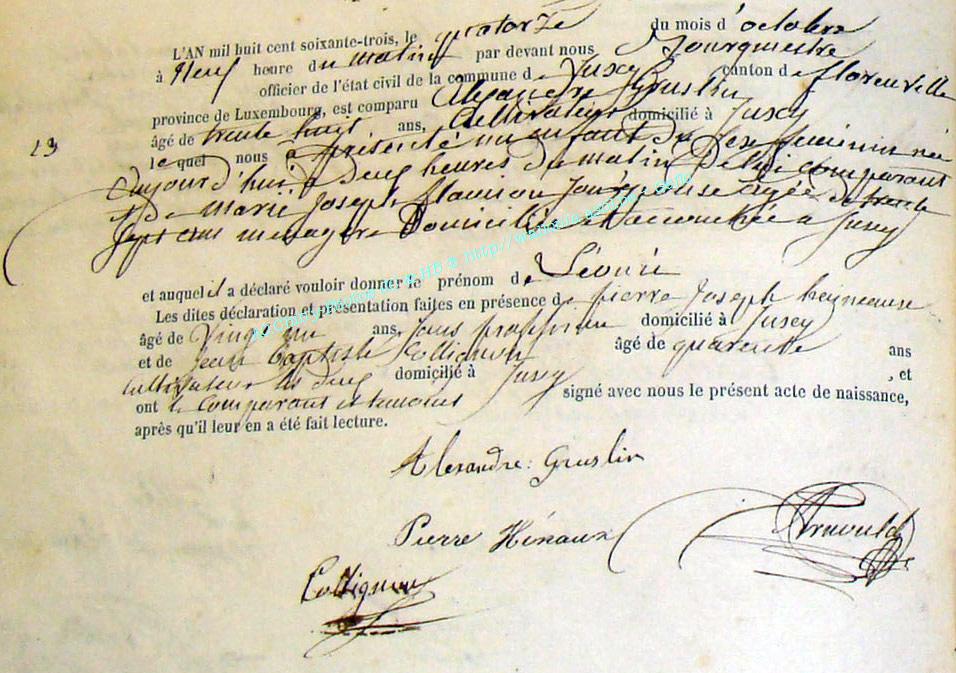 L'AN mil huit cent soixante-trois, le quatorze du mois d'octobre
à Neuf heure du matin par devant nous Bourgmestre
officier de l'état civil de la commune de Jusey canton de florenville
province de Luxembourg, est comparu Alexandre Gruslin
âgé de trente huit ans, Cultivateur domicilié à Jusey
23
lequel nous a présenté un enfant du sexe féminin née
aujourd'hui à Deux heures du matin De lui comparant
& de Marie Joseph flamion son épouse agée de trente
sept ans menagère Domiciliée et accouchée a Jusey
et auquel il a déclaré vouloir donner le prénom de Léonie
Les dites déclaration et présentation faites en présence de pierre Joseph heineaux
âgé de Vingt un ans, sans profession domicilié à Jusey
et de Jean Baptiste Collignon âgé de quarante ans
cultivateur les deux domicilié à Jusey , et
ont le Comparant et témoins signé avec nous le présent acte de naissance,
après qu'il leur en a été fait lecture.
Alexandre Gruslin
Pierre Hénaux
Arnould
Collignon